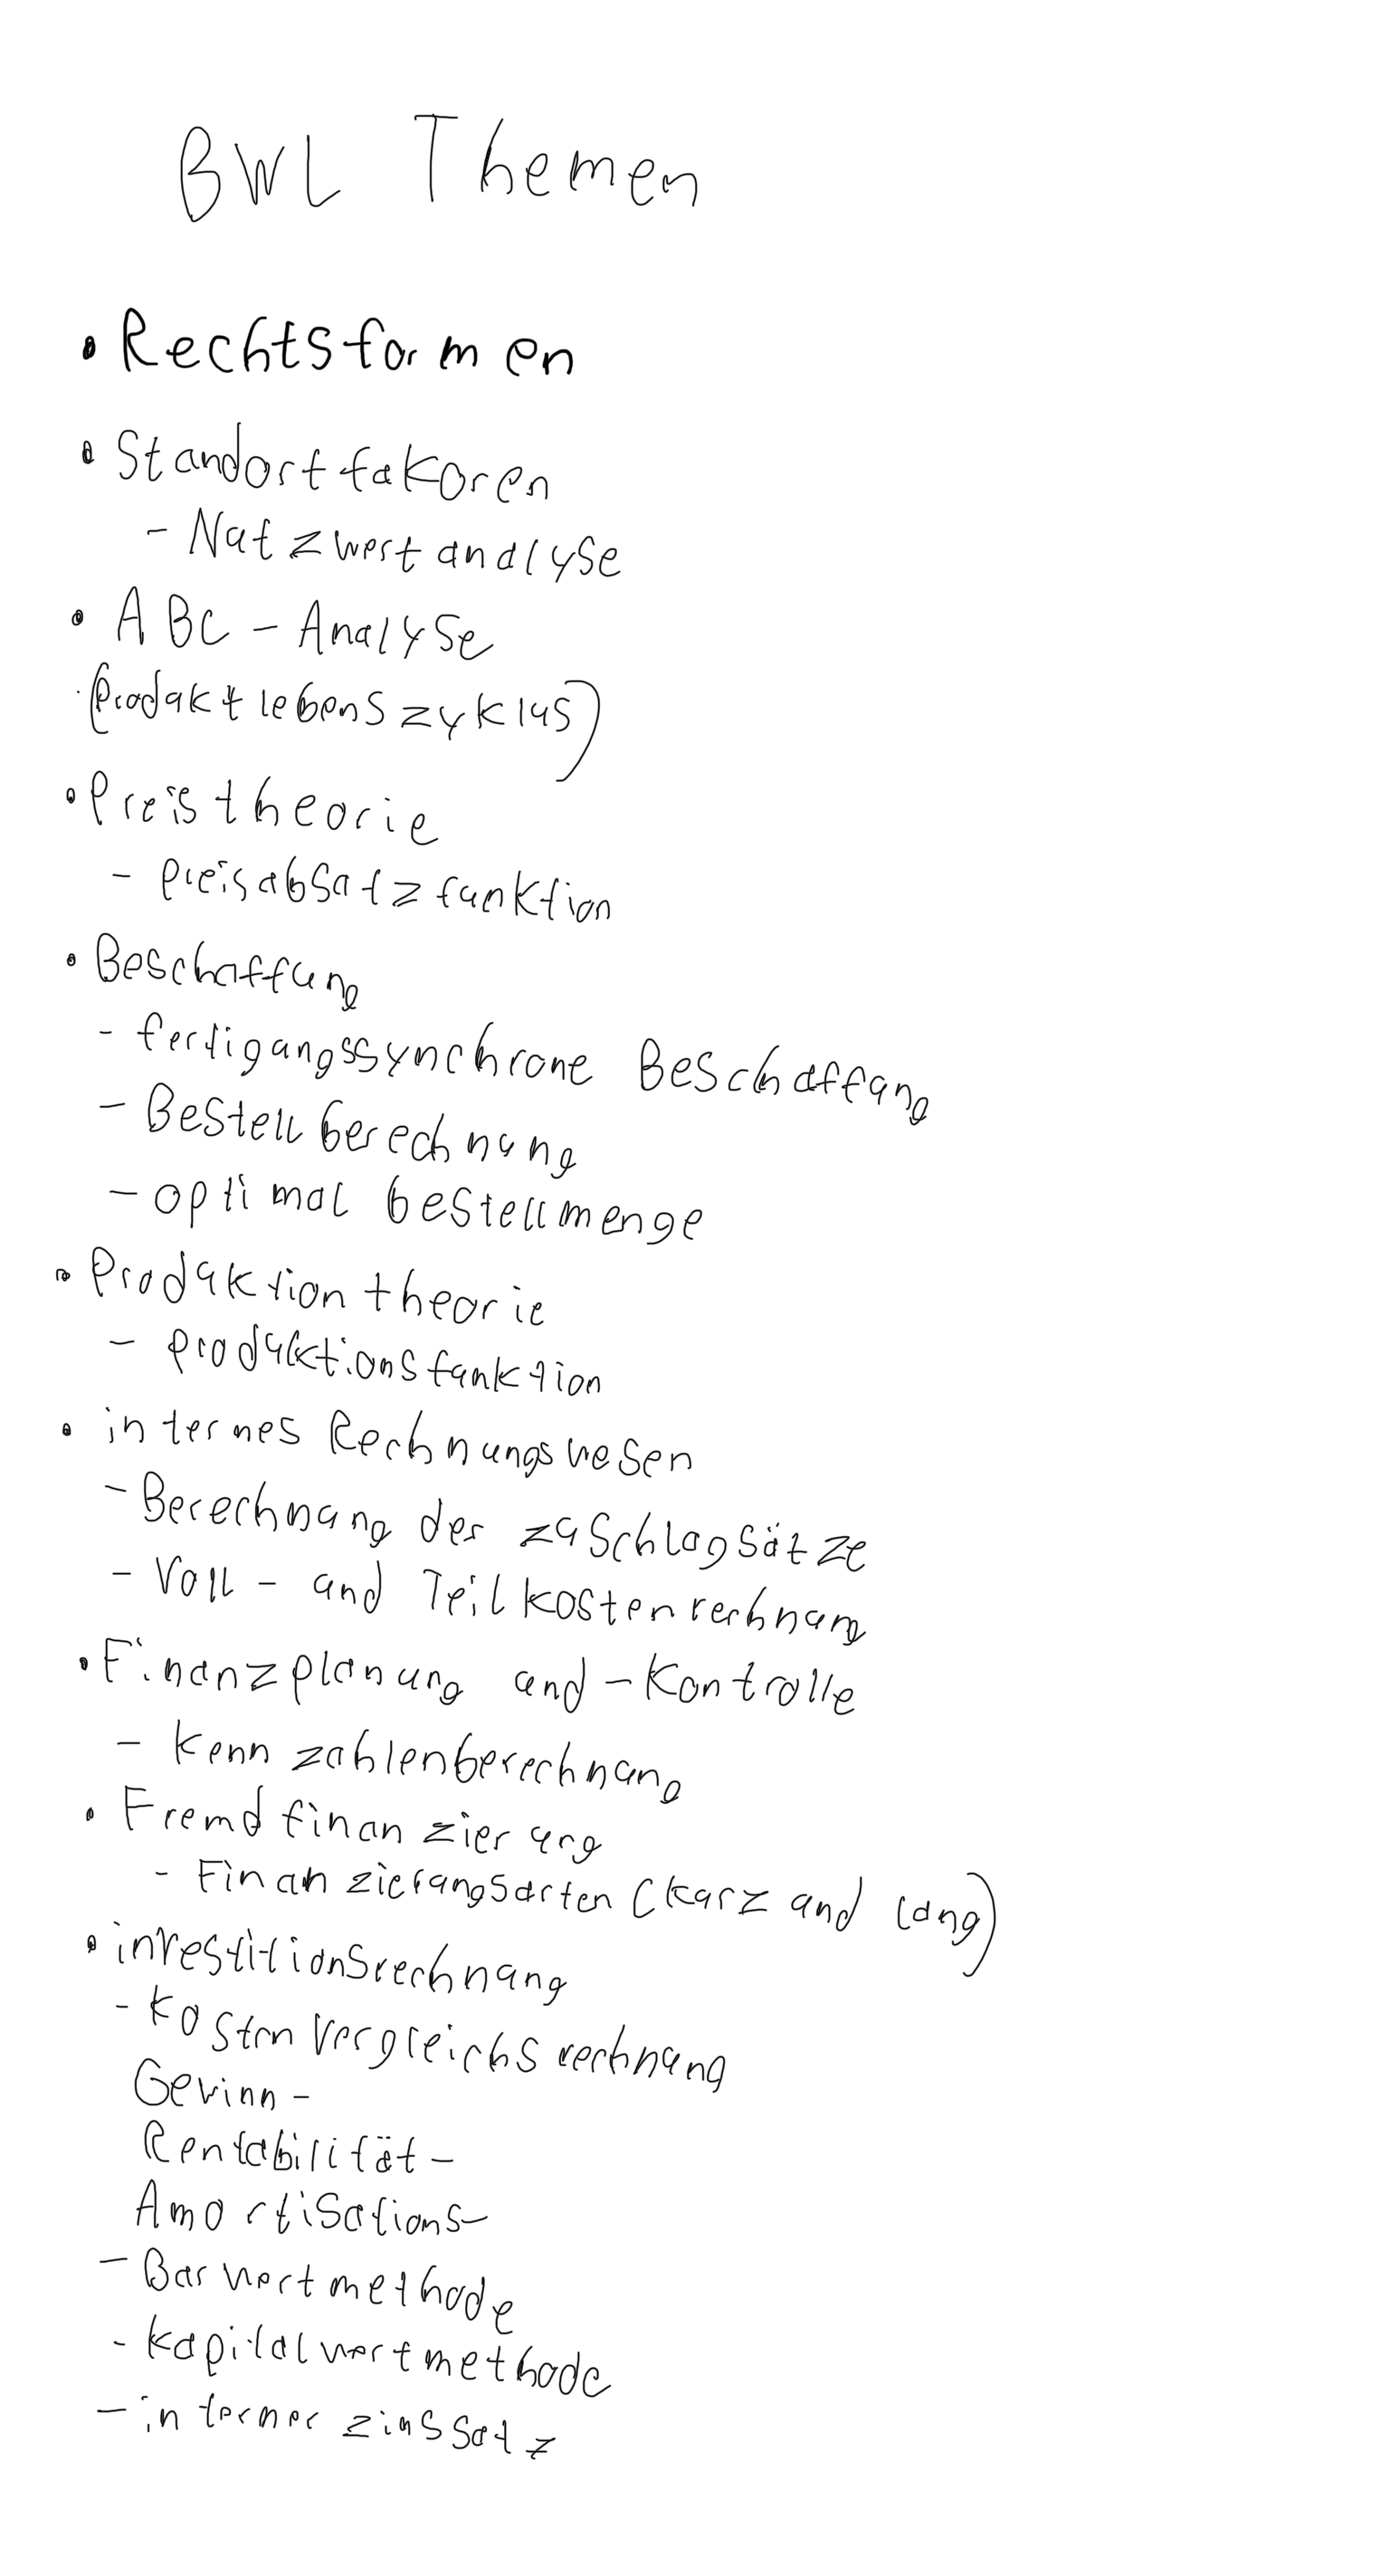 BWL Themen
• Rechtsformen
• Standortfakoren
- Nutzwertanalyse
• ABC - Analyse
· (Produktlebenszyklus)
• Preistheorie
- preisabsatzfunktion
• Beschaffung
- fertigungssynchrone Beschaffung
- Bestellberechnung
- optimal bestellmenge
• Produktiontheorie
- produktionsfunktion
• internes Rechnungswesen
- Berechnung der zuschlagsätze
- Voll- und Teilkostenrechnung
• Finanzplanung und -Kontrolle
- Kennzahlenberechnung
• Fremdfinanzierung
- Finanzierungsarten (kurz und lang)
• investitionsrechnung
- Kostenvergleichsrechnung
Gewinn-
Rentabilität-
Amortisations-
- Barwertmethode
- Kapitalwertmethode
- interner zinssatz